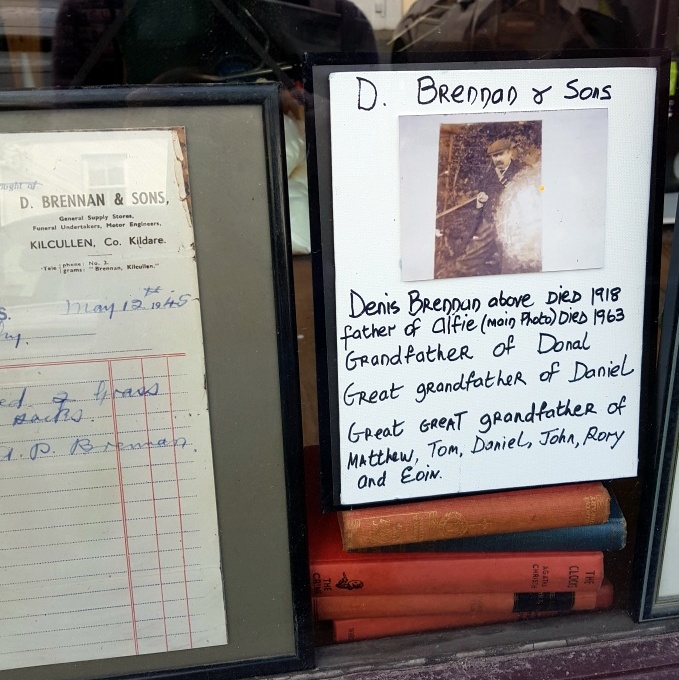 D. BRENNAN & SONS,
General Supply Stores,
Funeral Undertakers, Motor Engineers,
KILCULLEN, Co. Kildare.
Tele phone: No. 3.
grams: "Brennan, Kilcullen."
May 12th 1945
ed of Grass
sacks.
P. Brennan.
D. Brennan & Sons
Denis Brennan above Died 1918
father of Alfie (main Photo) Died 1963
Grandfather of Donal
Great grandfather of Daniel
Great GREAT grandfather of
Matthew, Tom, Daniel, John, Rory
and Eoin.
THE
CRIME
AGATHA
CHRISTIE
THE
CLOCKS